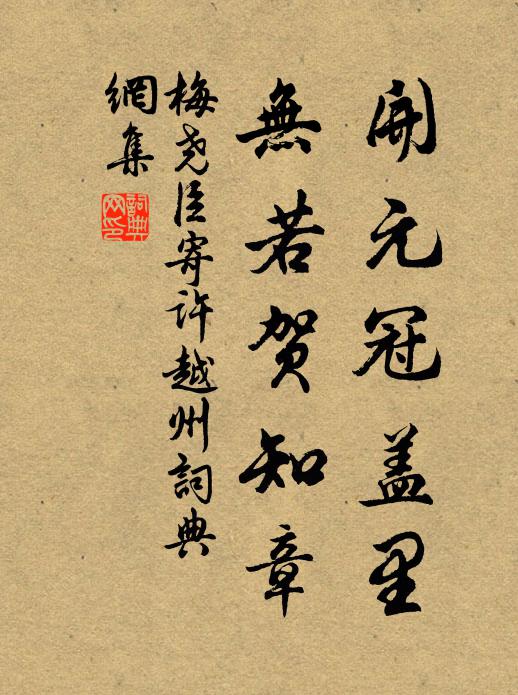 開元冠盖里
無若贺知章
梅尧臣寄许越州詞典
網集
詞典
网印